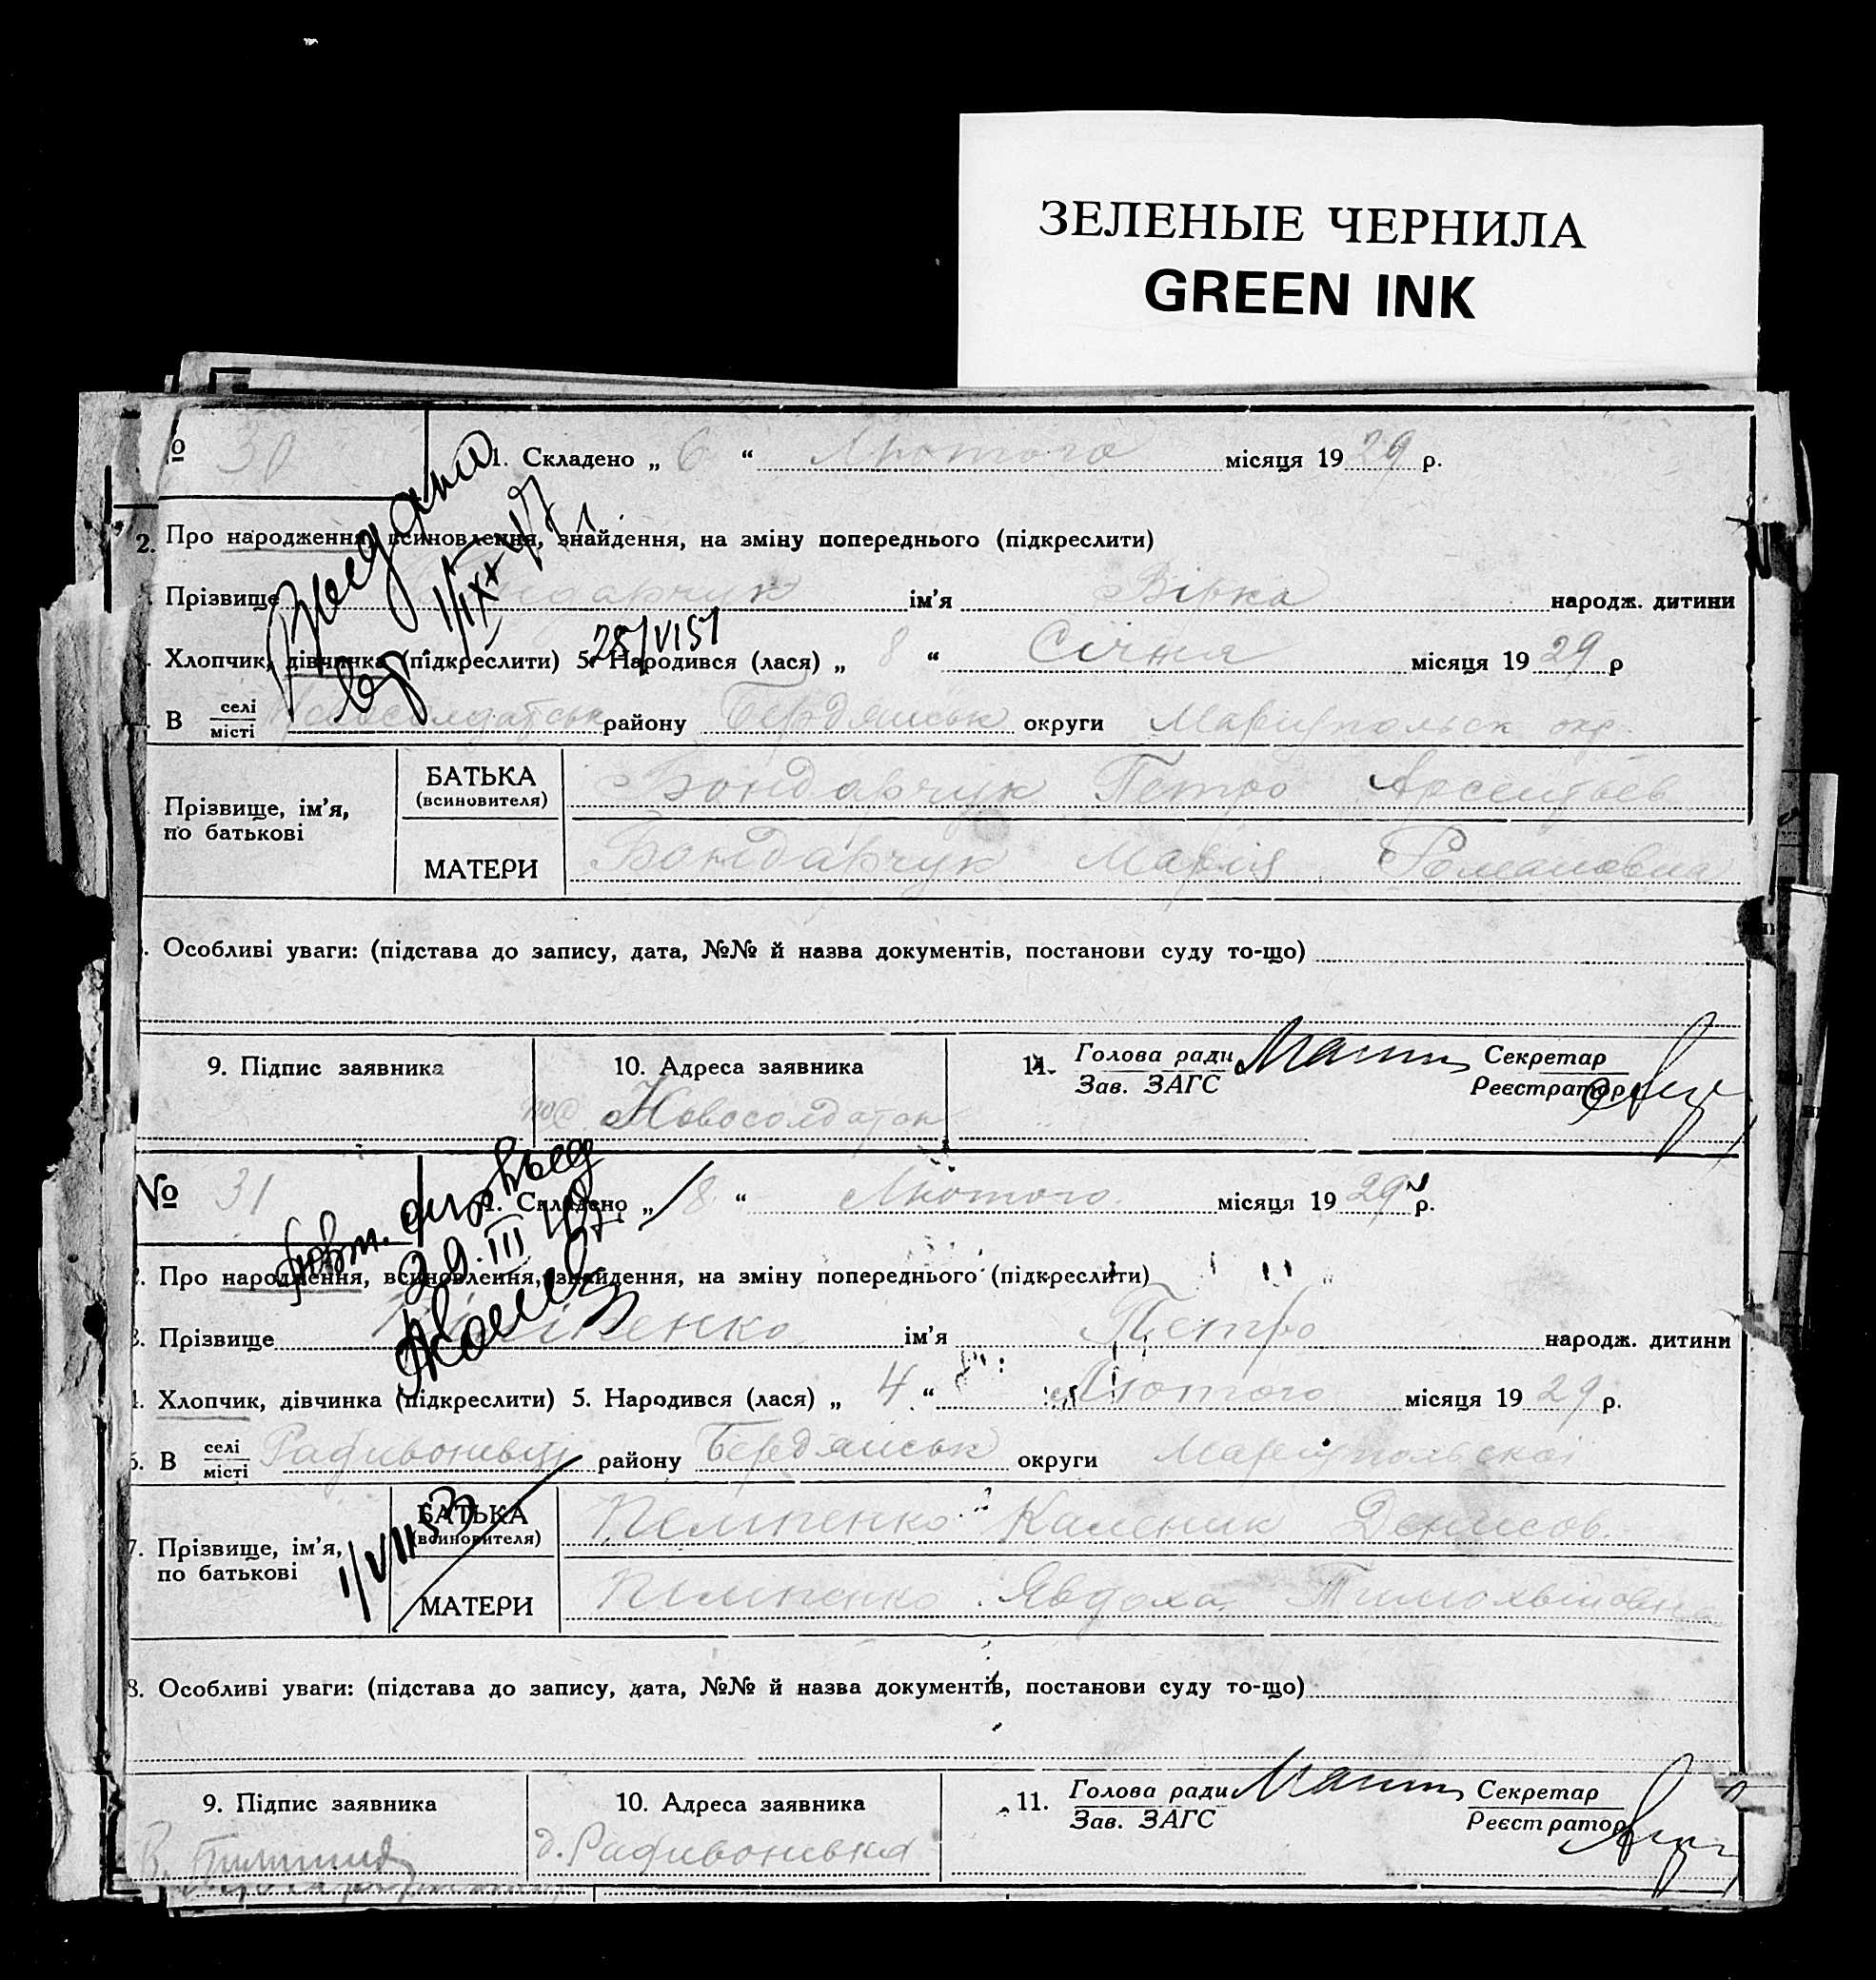 ЗЕЛЕНЫЕ ЧЕРНИЛА
GREEN INK
№ 30 1. Складено „ 6 “ Лютого місяця 19 29 р.
2. Про народження, всиновлення, знайдення, на зміну попереднього (підкреслити)
Прізвище Бондарчук ім’я Вірка народж. дитини
Хлопчик, дівчинка (підкреслити) 5. Народився (лася) „ 8 “ Січня місяця 19 29 р
28/VI 51
В селі місті Новосолдатськ району Бердянськ округи Маріупольск окр.
Прізвище, ім’я, по батькові
БАТЬКА (всиновителя) Бондарчук Петро Арсентьев
МАТЕРИ Бондарчук Марія Романовна
Особливі уваги: (підстава до запису, дата, №№ й назва документів, постанови суду то-що)
9. Підпис заявника 10. Адреса заявника 11. Голова ради Секретар
Зав. ЗАГС Реєстратор
Новосолдатск
№ 31 1. Складено „ 8 “ Лютого місяця 19 29 р.
повт. выед
29.III
2. Про народження, всиновлення, знайдення, на зміну попереднього (підкреслити)
3. Прізвище ім’я Петро народж. дитини
4. Хлопчик, дівчинка (підкреслити) 5. Народився (лася) „ 4 “ Лютого місяця 19 29 р.
6. В селі місті Радивонівці району Бердянськ округи Маріупольскої
7. Прізвище, ім’я, по батькові
1/VII 53
БАТЬКА (всиновителя) Пилипенко Каленик Денисов.
МАТЕРИ Пилипенко Явдоха Тимохвіївна
8. Особливі уваги: (підстава до запису, дата, №№ й назва документів, постанови суду то-що)
9. Підпис заявника 10. Адреса заявника 11. Голова ради Секретар
Зав. ЗАГС Реєстратор
д. Радивонівка